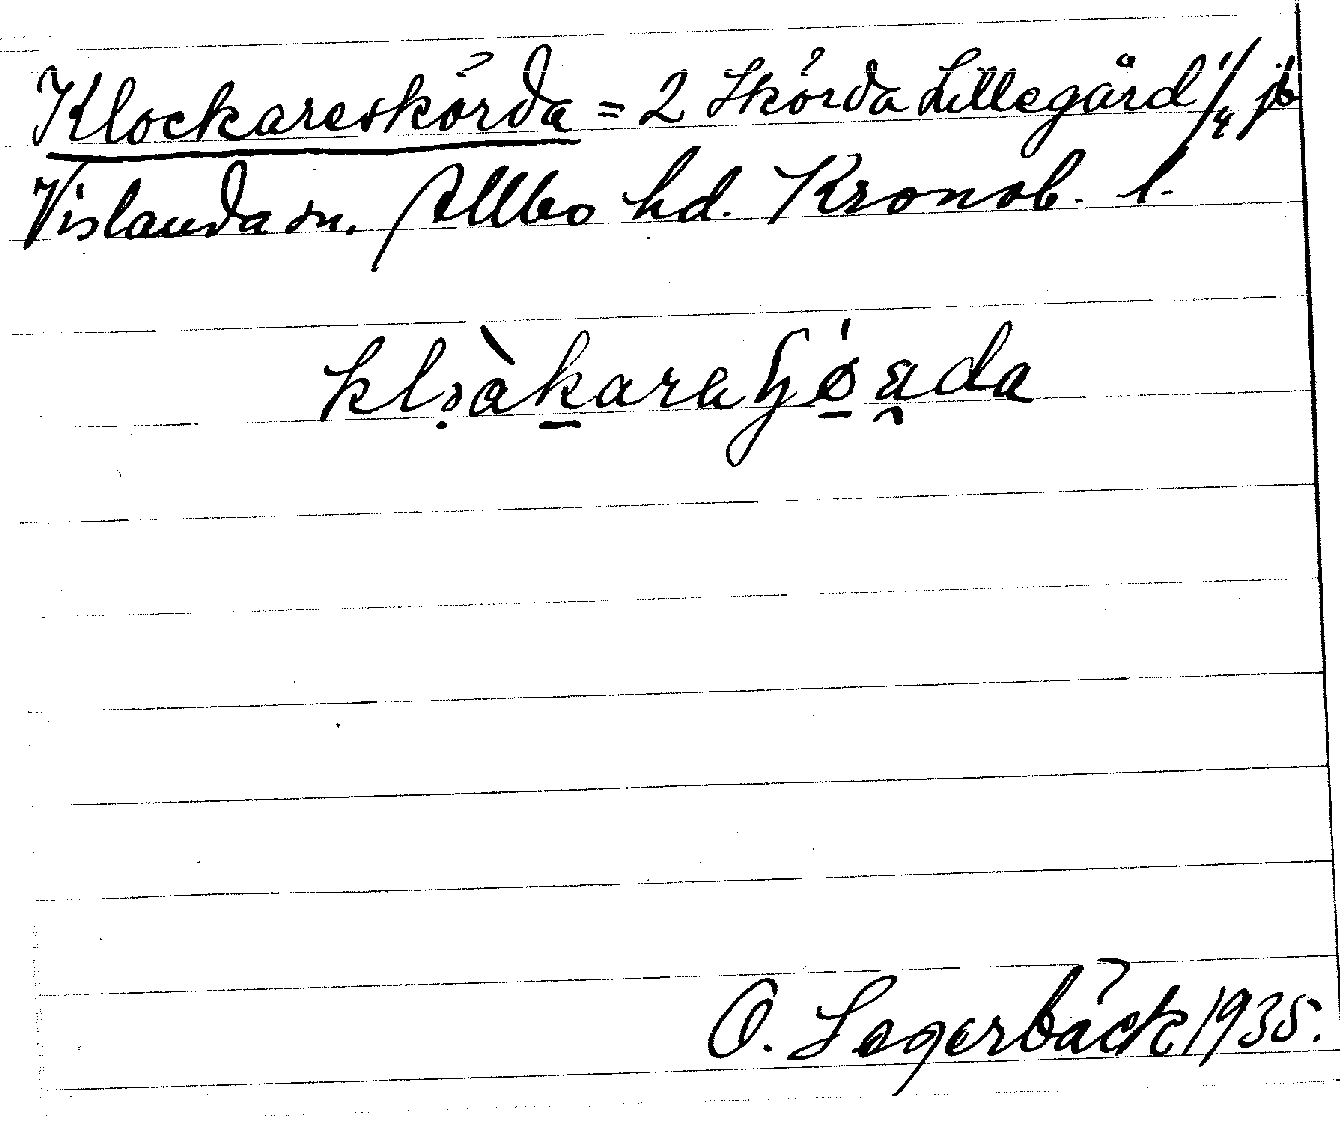 Klockareskörda = 2 Skörda Lillegård 1/4 jb
Vislanda sn. Allbo hd. Kronob. l.
O. Lagerbäck 1935.